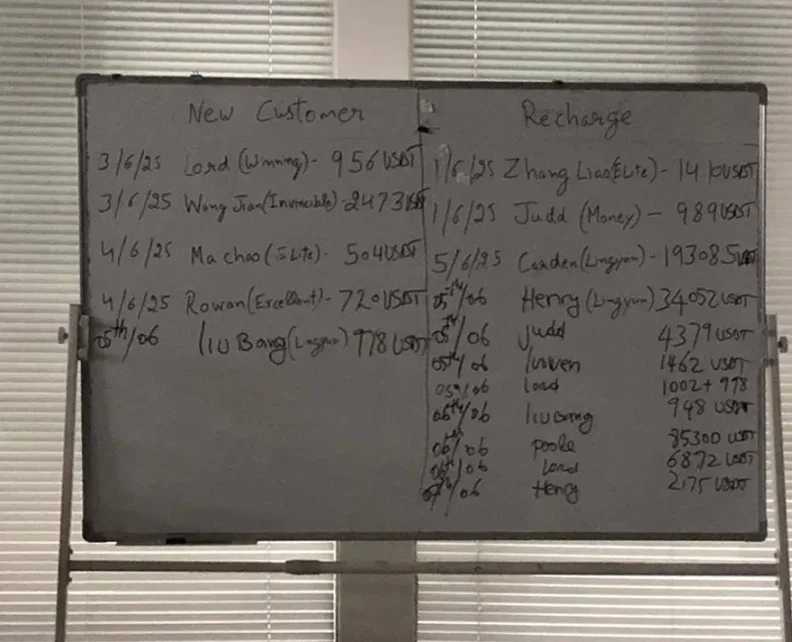 New Customer
3/6/25 Lord (Winning) - 956 USDT
3/6/25 Wang Jian (Invincible) - 2473 USDT
4/6/25 Ma chao (Elite) - 504 USDT
4/6/25 Rowan (Excellent) - 720 USDT
05th/06 liu Bang (Lingyun) 978 USDT
Recharge
1/6/25 Zhang Liao (Elite) - 1410 USDT
1/6/25 Judd (Money) - 989 USDT
5/6/25 Carden (Lingyun) - 193085 USDT
05th/06 Henry (Lingyun) 34052 USDT
05th/06 Judd 4379 USDT
05th/06 1462 USDT
05th/06 Lord 1002 + 978
06th/06 liu Bang 948 USDT
06th/06 poole 85300 USDT
06th/06 Lord 6872 USDT
07th/06 Henry 2175 USDT